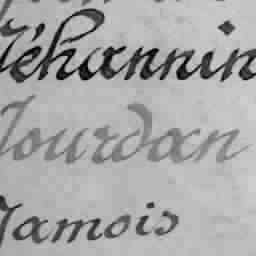 Jéhannin
Jourdan
Jamois